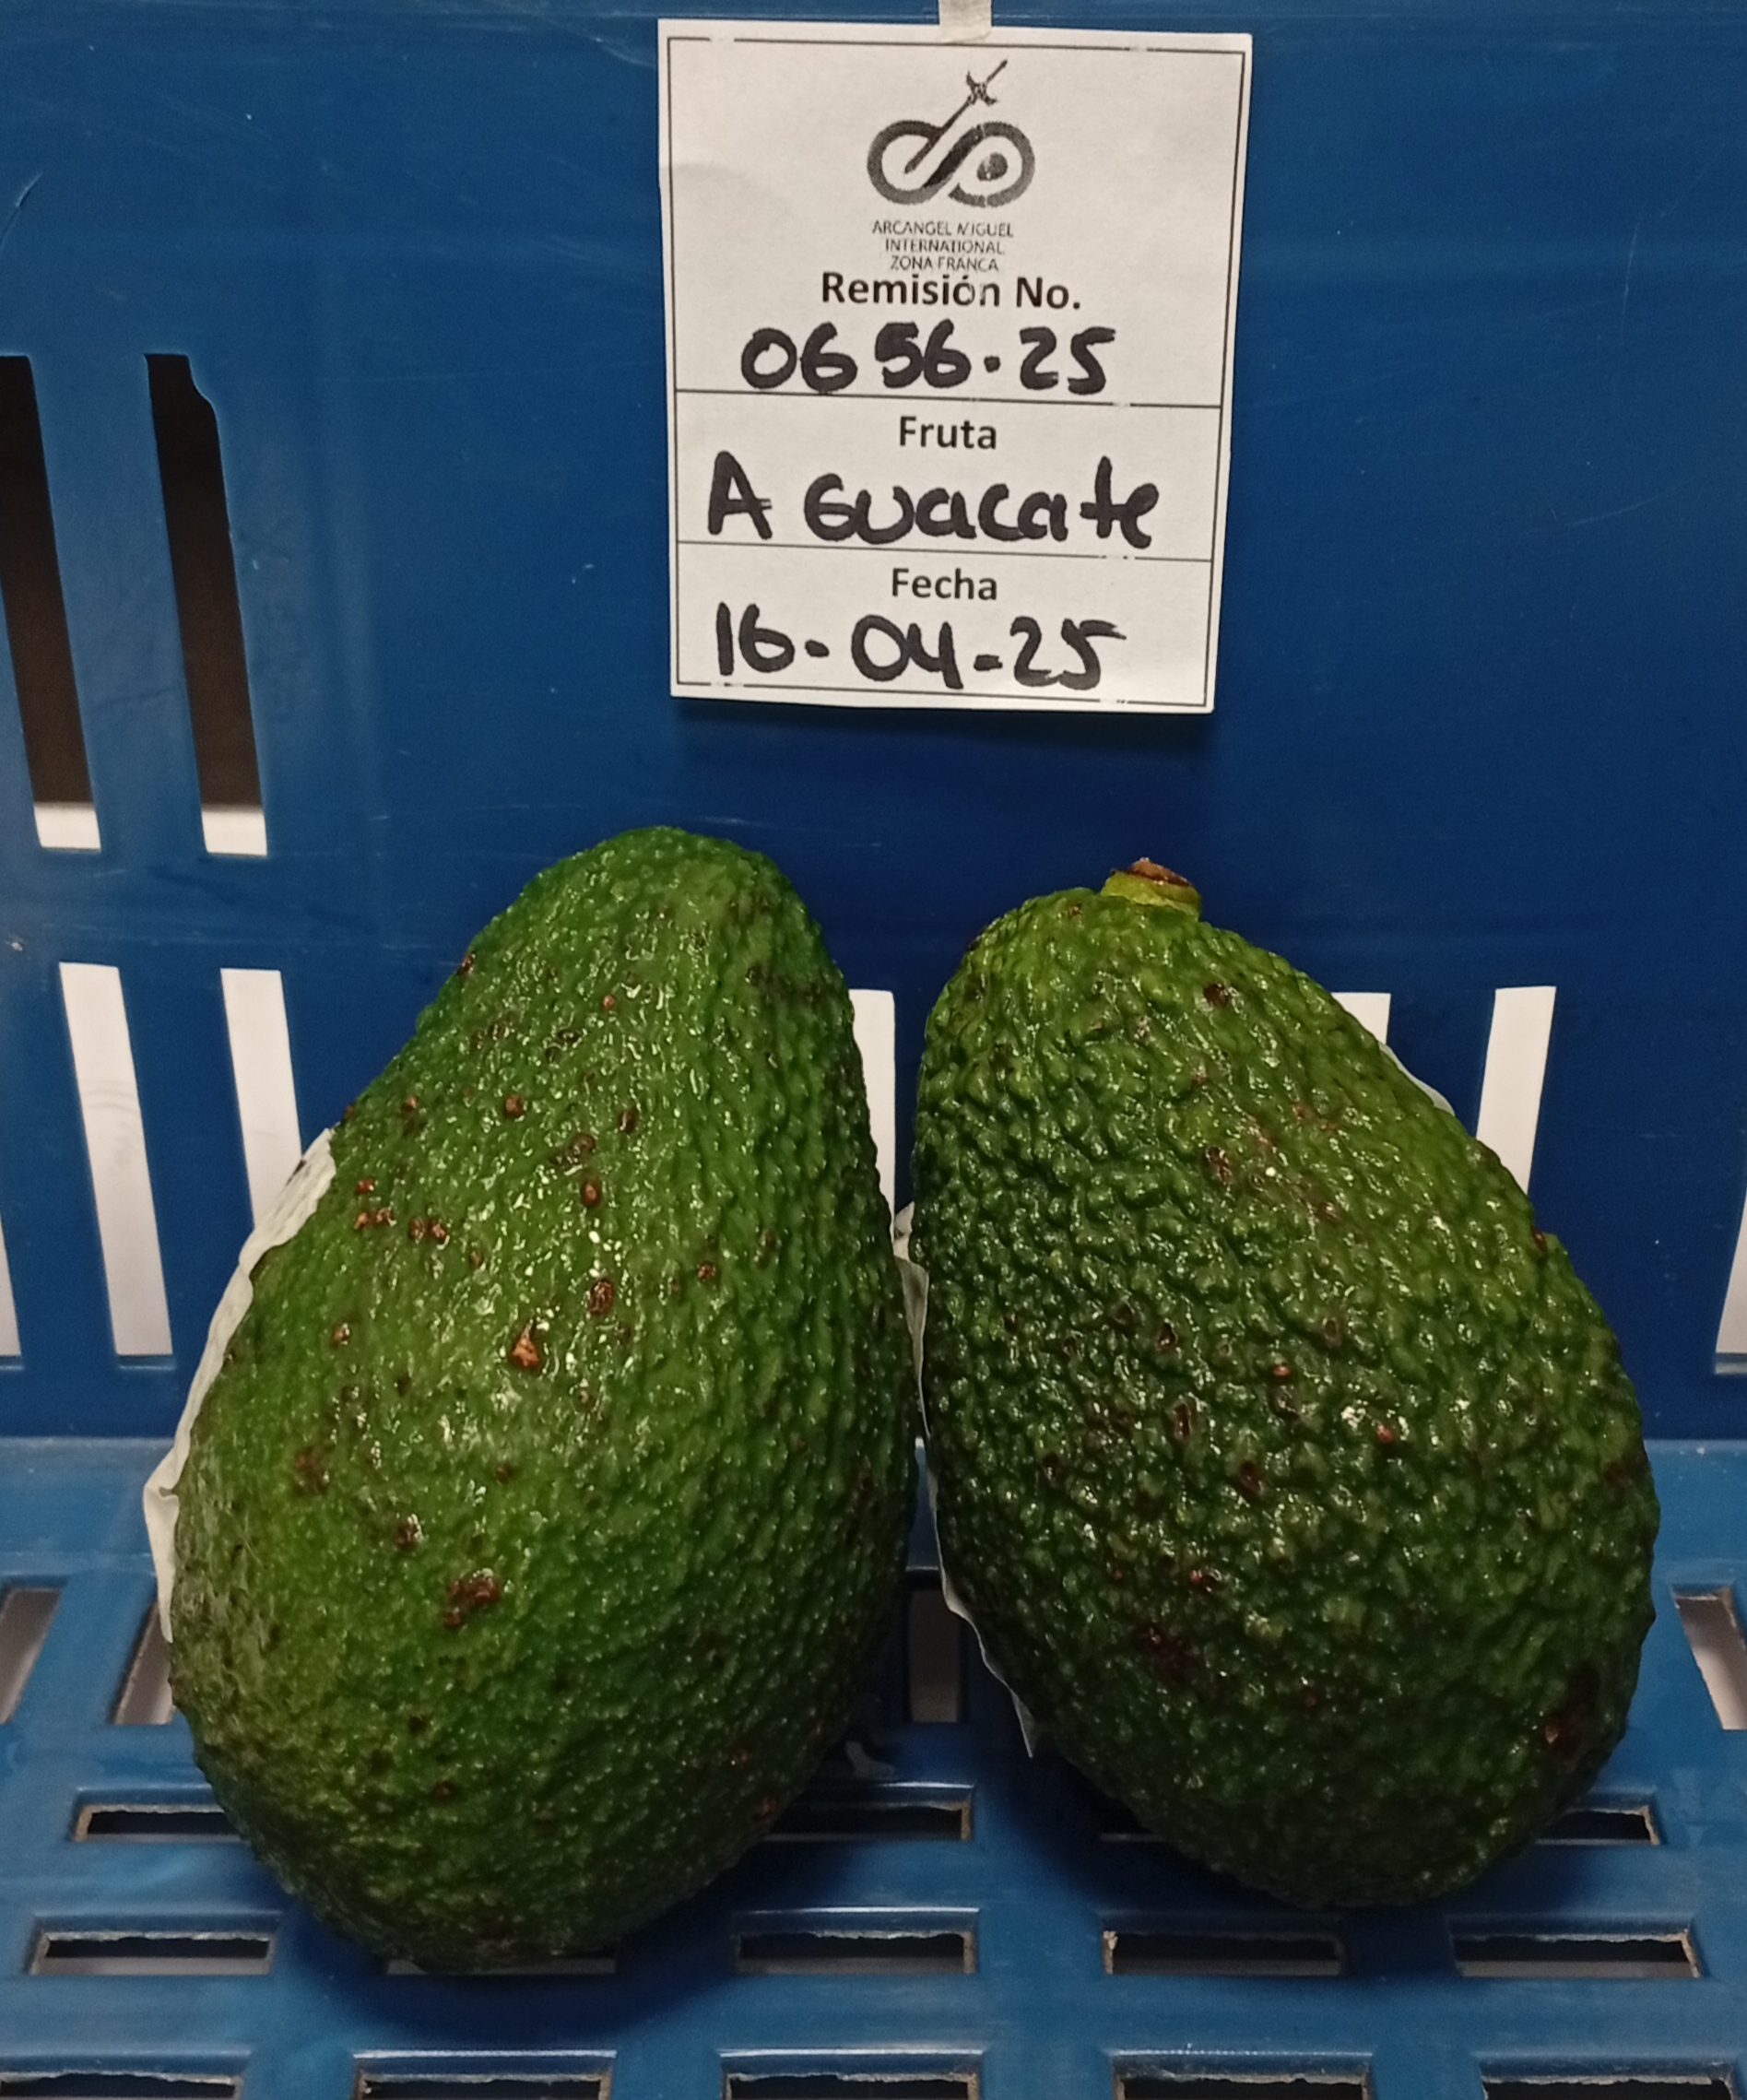 ARCANGEL MIGUEL
INTERNATIONAL
ZONA FRANCA
Remisión No.
0656.25
Fruta
AGuacate
Fecha
16-04-25